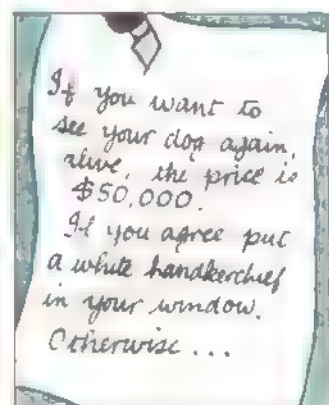 If you want to
see your dog again,
alive, the price is
$50,000.
If you agree put
a white handkerchief
in your window.
Otherwise...